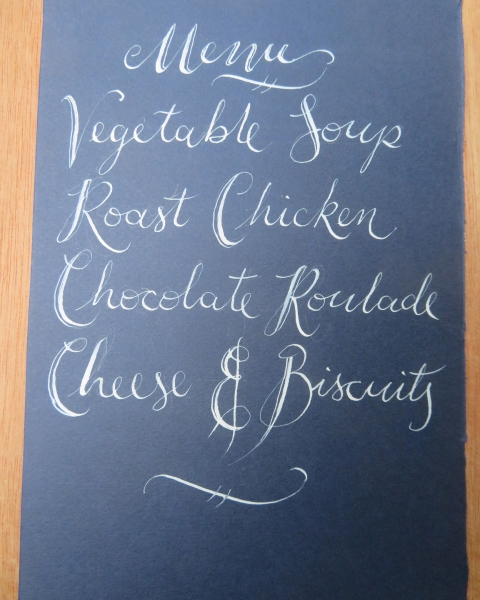 Menu
Vegetable Soup
Roast Chicken
Chocolate Roulade
Cheese & Biscuits